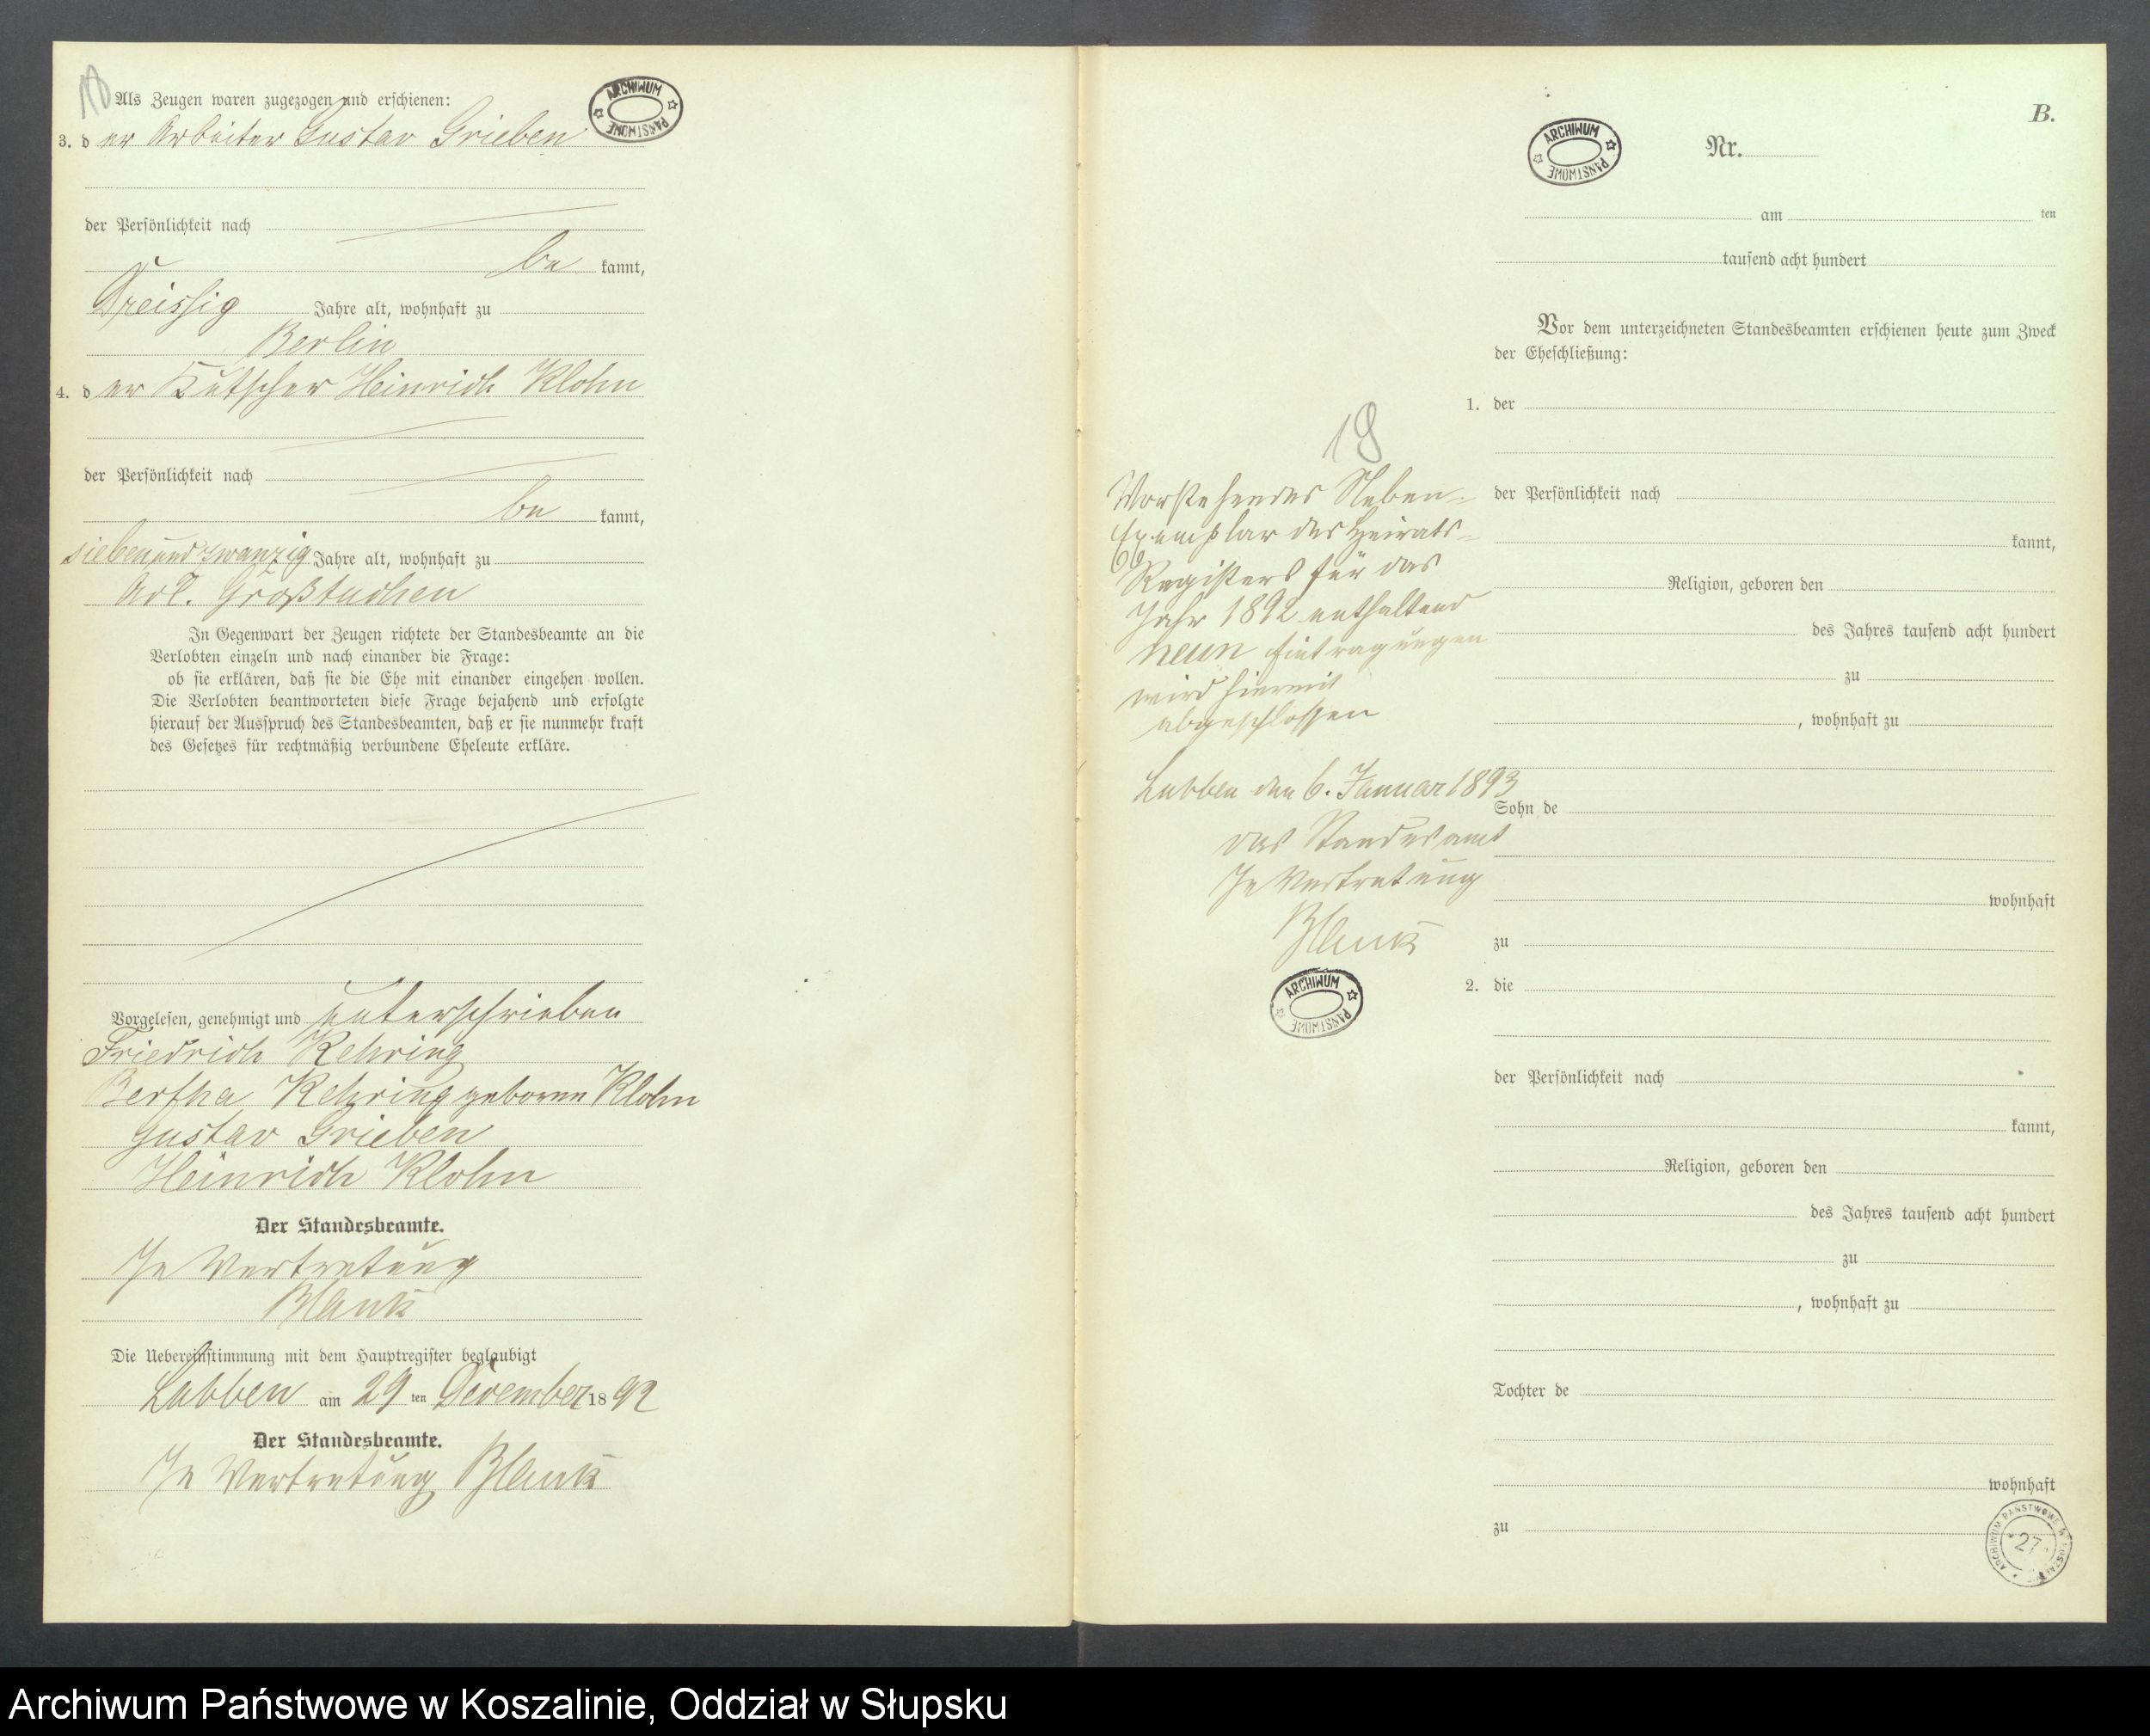 18
Als Zeugen waren zugezogen und erschienen:
3. d er Arbeiter Gustav Grieben
ARCHIWUM PAŃSTWOWE
der Persönlichkeit nach
be kannt,
Dreissig Jahre alt, wohnhaft zu
Berlin
4. d er Kutscher Heinrich Klohn
der Persönlichkeit nach
be kannt,
siebenundzwanzig Jahre alt, wohnhaft zu
Adl. Großtuchen
In Gegenwart der Zeugen richtete der Standesbeamte an die
Verlobten einzeln und nach einander die Frage:
ob sie erklären, daß sie die Ehe mit einander eingehen wollen.
Die Verlobten beantworteten diese Frage bejahend und erfolgte
hierauf der Ausspruch des Standesbeamten, daß er sie nunmehr kraft
des Gesetzes für rechtmäßig verbundene Eheleute erkläre.
Vorgelesen, genehmigt und unterschrieben
Friedrich Rehring
Bertha Rehring geborene Klohn
Gustav Grieben
Heinrich Klohn
Der Standesbeamte.
In Vertretung
Blank
Die Uebereinstimmung mit dem Hauptregister beglaubigt
Lubben am 29 ten Dezember 18 92
Der Standesbeamte.
In Vertretung Blank
B.
ARCHIWUM PAŃSTWOWE
Nr.
am ten
tausend acht hundert
Vor dem unterzeichneten Standesbeamten erschienen heute zum Zweck
der Eheschließung:
1. der
der Persönlichkeit nach
kannt,
Religion, geboren den
des Jahres tausend acht hundert
zu
, wohnhaft zu
Sohn de
wohnhaft
zu
2. die
der Persönlichkeit nach
kannt,
Religion, geboren den
des Jahres tausend acht hundert
zu
, wohnhaft zu
Tochter de
wohnhaft
zu
18
Vorstehendes Neben-
Exemplar des Heirats-
Registers für das
Jahr 1892 enthaltend
neun Eintragungen
wird hiermit
abgeschlossen
Lubben den 6. Januar 1893
Das Standesamt
In Vertretung
Blank
ARCHIWUM PAŃSTWOWE
ARCHIWUM PAŃSTWOWE W
27
Archiwum Państwowe w Koszalinie, Oddział w Słupsku